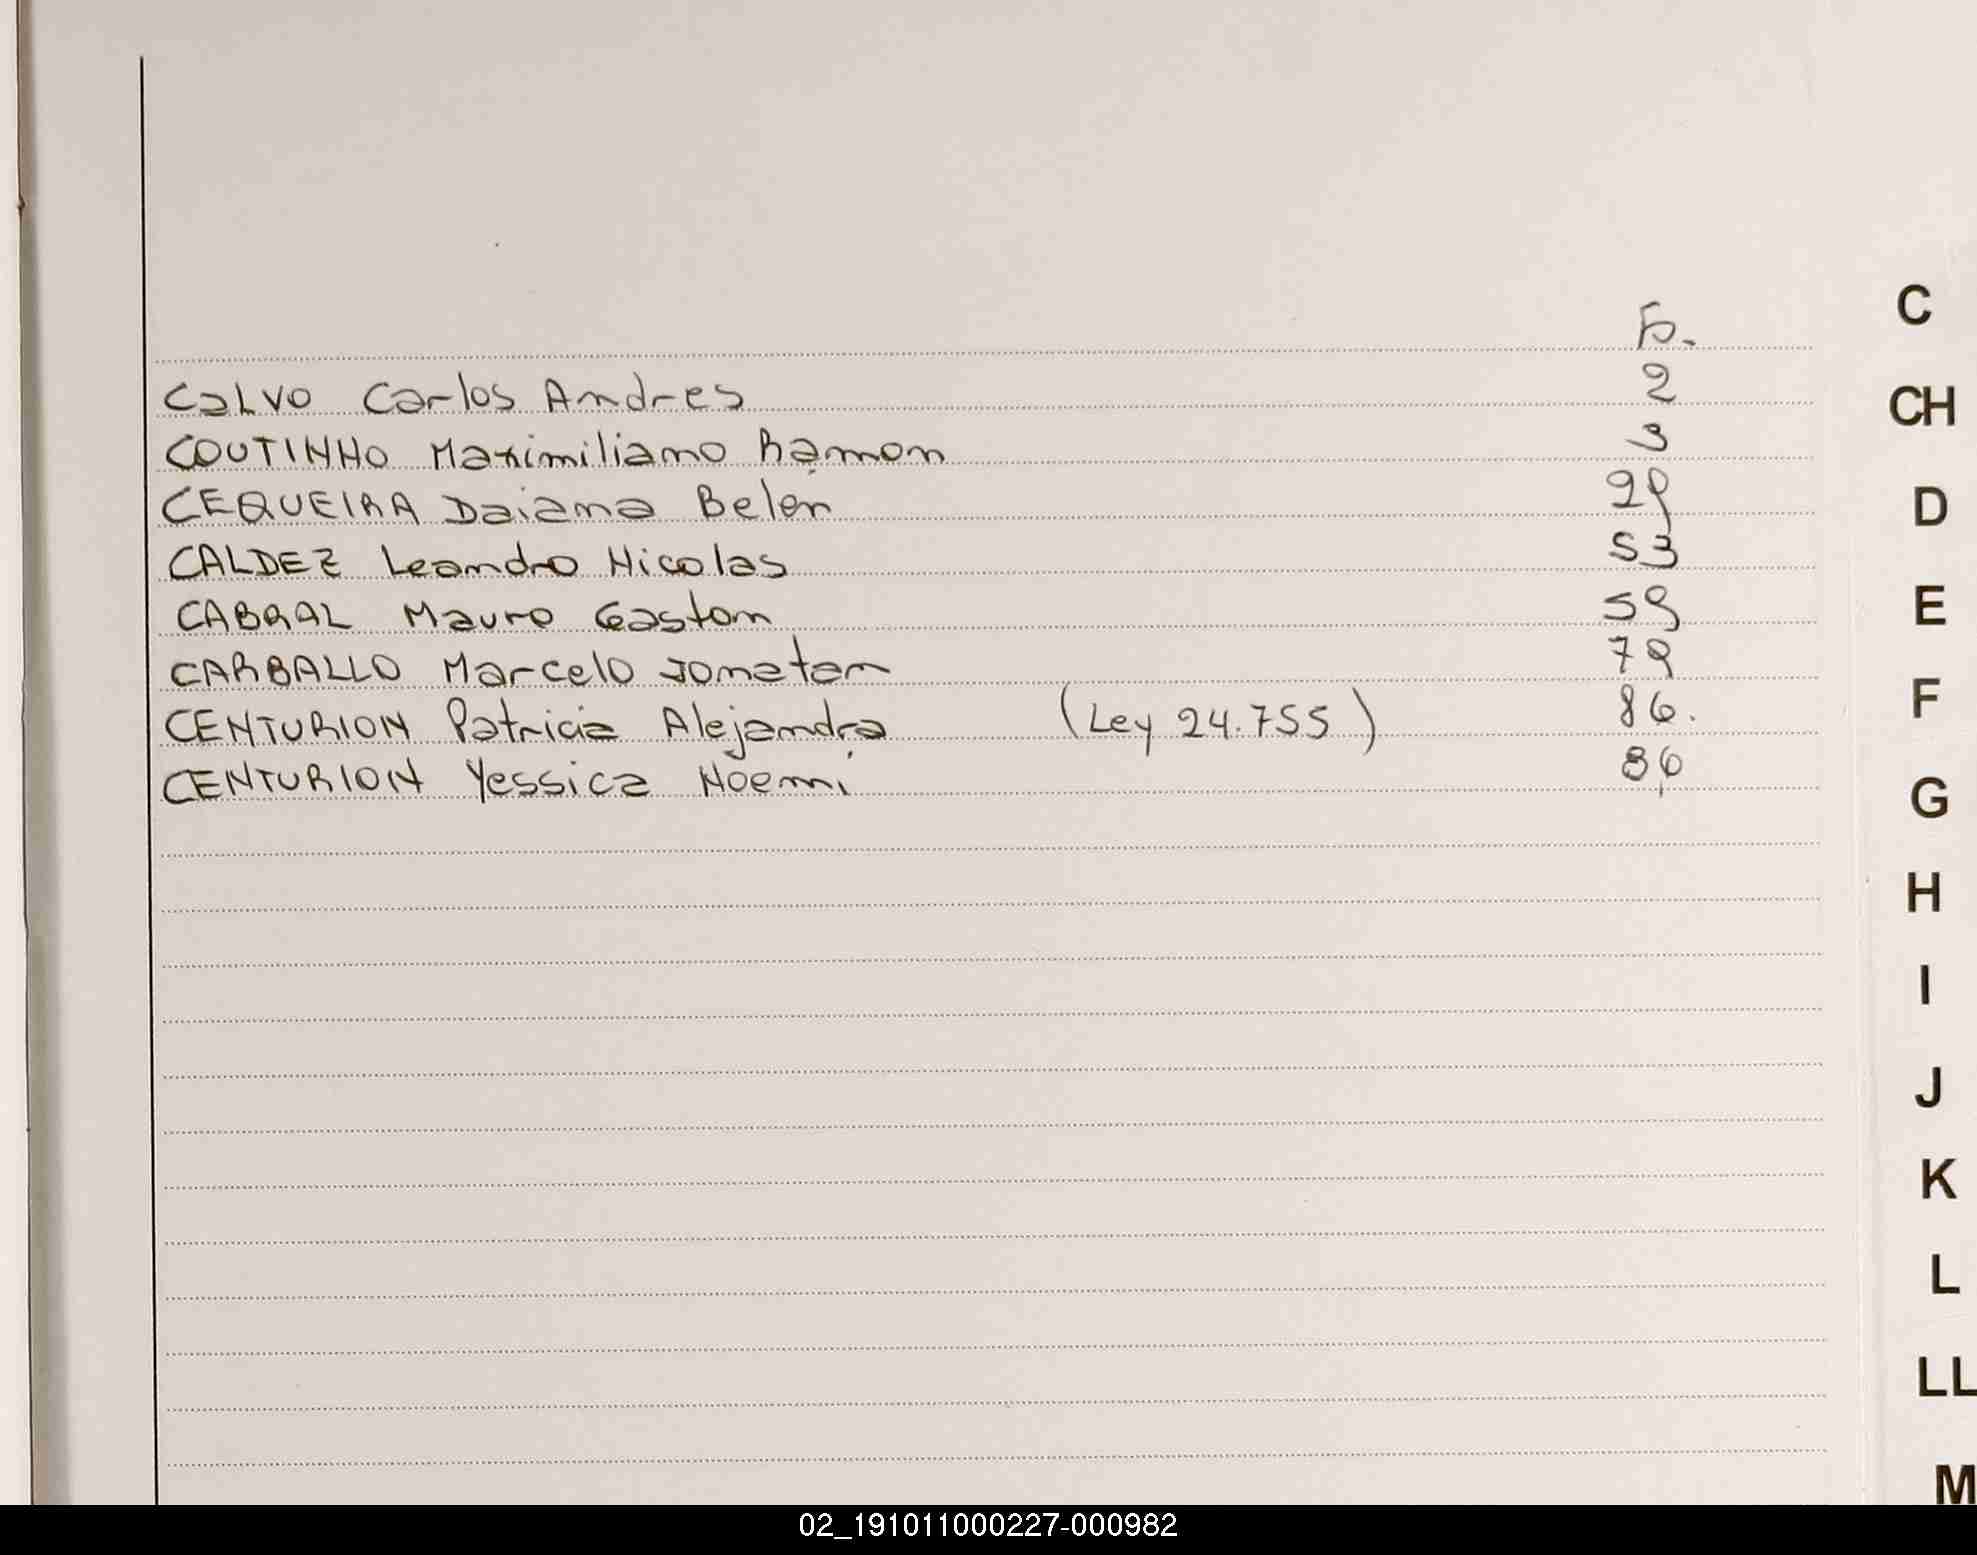 Fo.
CALVO Carlos Andres 2
COUTINHO Maximiliano Ramon 3
CEQUEIRA Daiana Belen 29
CALDEZ Leandro Nicolas 53
CABRAL Mauro Gaston 59
CARBALLO Marcelo Jonatan 79
CENTURION Patricia Alejandra (Ley 24.755) 86.
CENTURION Yessica Noemi 86
C
CH
D
E
F
G
H
I
J
K
L
LL
M
02_191011000227-000982